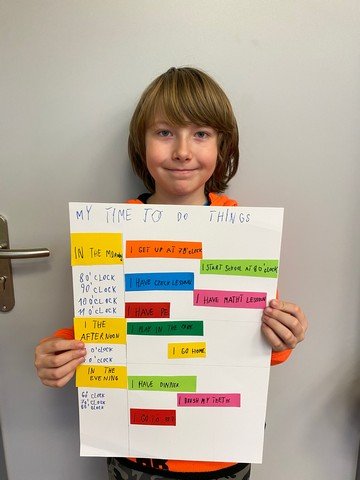 MY TIME TO DO THINGS
IN THE MORNING
I GET UP AT 7 O'CLOCK
I START SCHOOL AT 8 O'CLOCK
8 O'CLOCK
9 O'CLOCK
10 O'CLOCK
11 O'CLOCK
I HAVE LESSON
I HAVE MATHS LESSON
I HAVE PE
I THE
AFTERNOON
I PLAY IN THE
O'CLOCK
O'CLOCK
I GO HOME
IN THE
EVENING
I HAVE DINNER
6 O'CLOCK
7 O'CLOCK
8 O'CLOCK
I BRUSH MY TEETH
I GO TO